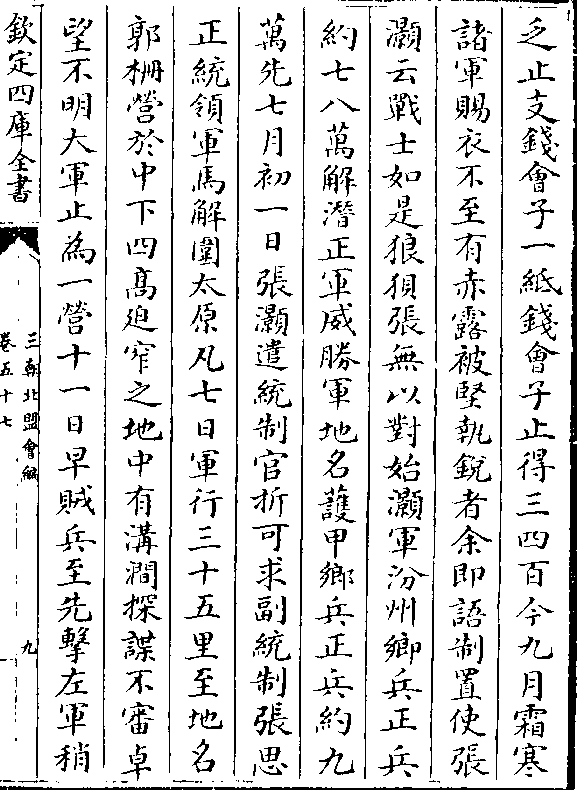 乏止支錢會子一紙錢會子止得三四百今九月霜寒
諸軍賜衣不至有赤露被堅執銳者余即語制置使張
灝云戰士如是狼狽張無以對始灝軍汾州鄉兵正兵
約七八萬解潛正軍威勝軍地名䕶甲鄉兵正兵約九
萬先七月初一日張灝遣統制官折可求副統制張思
正統領軍馬解圍太原凡七日軍行三十五里至地名
郭柵營於中下四髙迫窄之地中有溝澗探諜不審卓
望不明大軍止為一營十一日早賊兵至先擊左軍稍
欽定四庫全書
三朝北盟會編
卷五十七
九